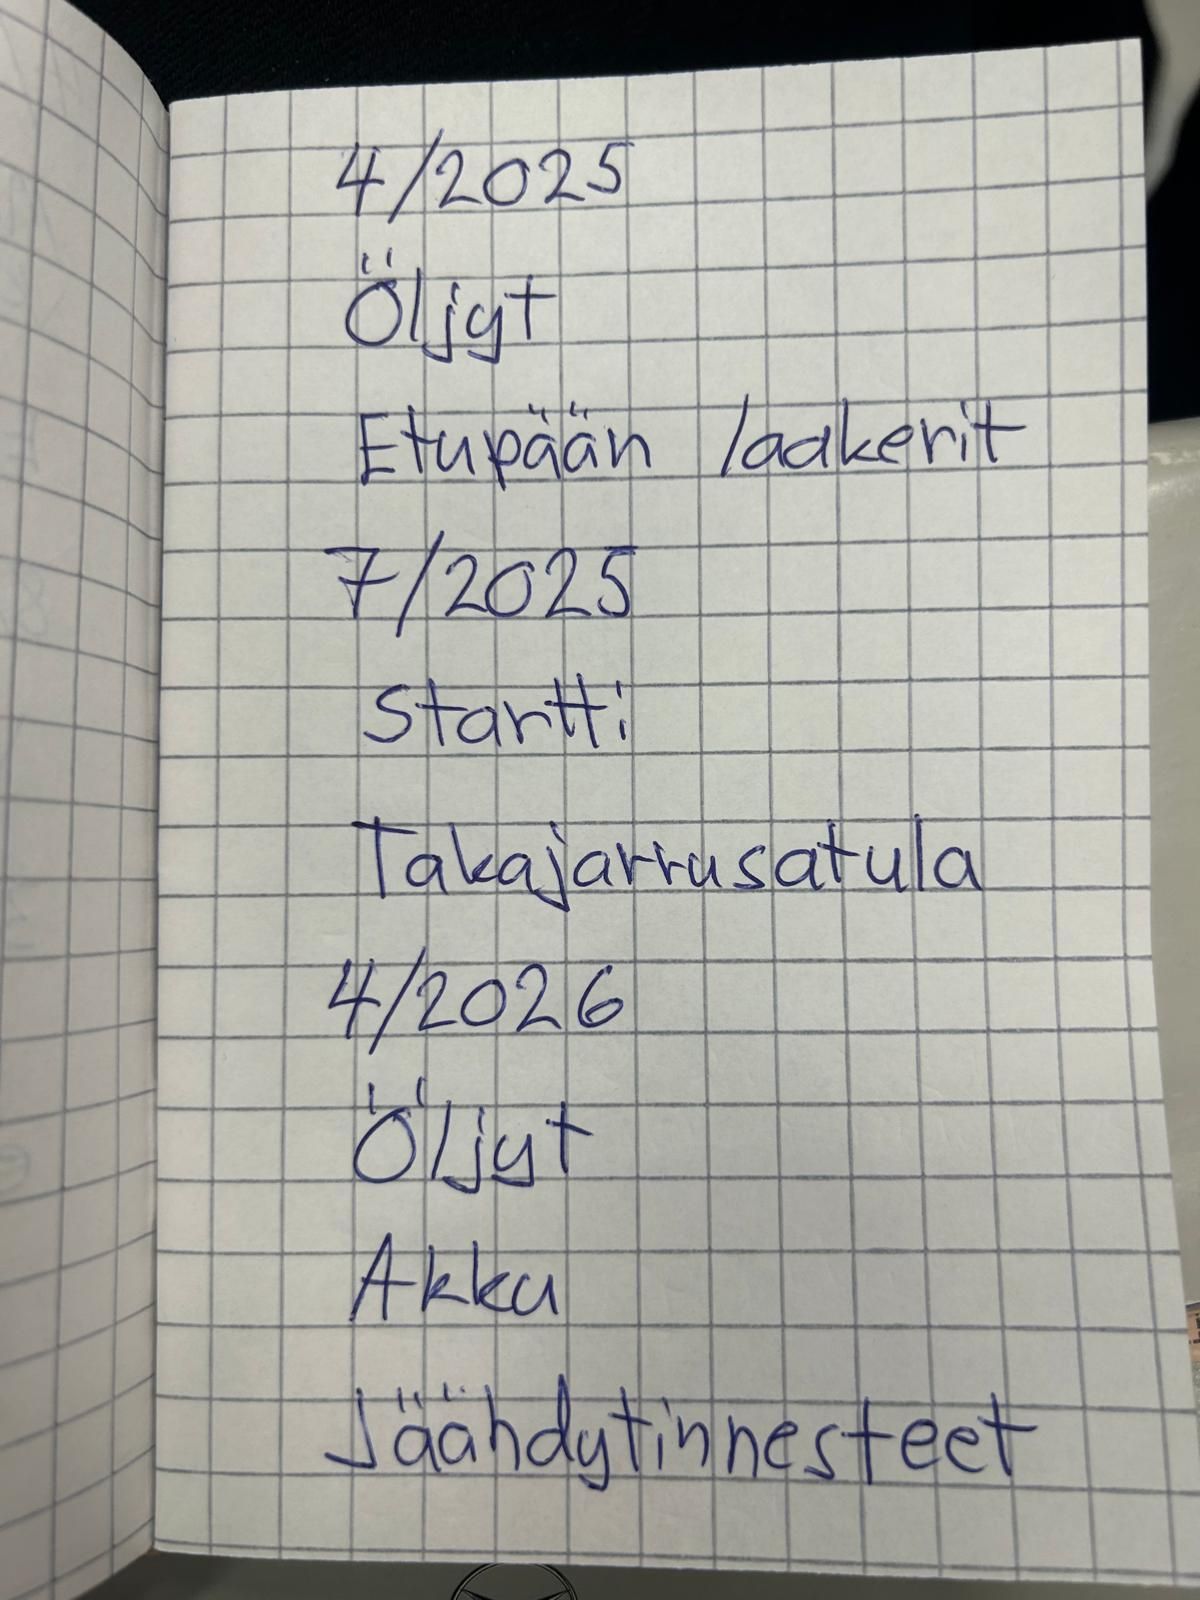 4/2025
Öljyt
Etupään laakerit
7/2025
Startti
Takajarrusatula
4/2026
Öljyt
Akku
Jäähdytinnesteet